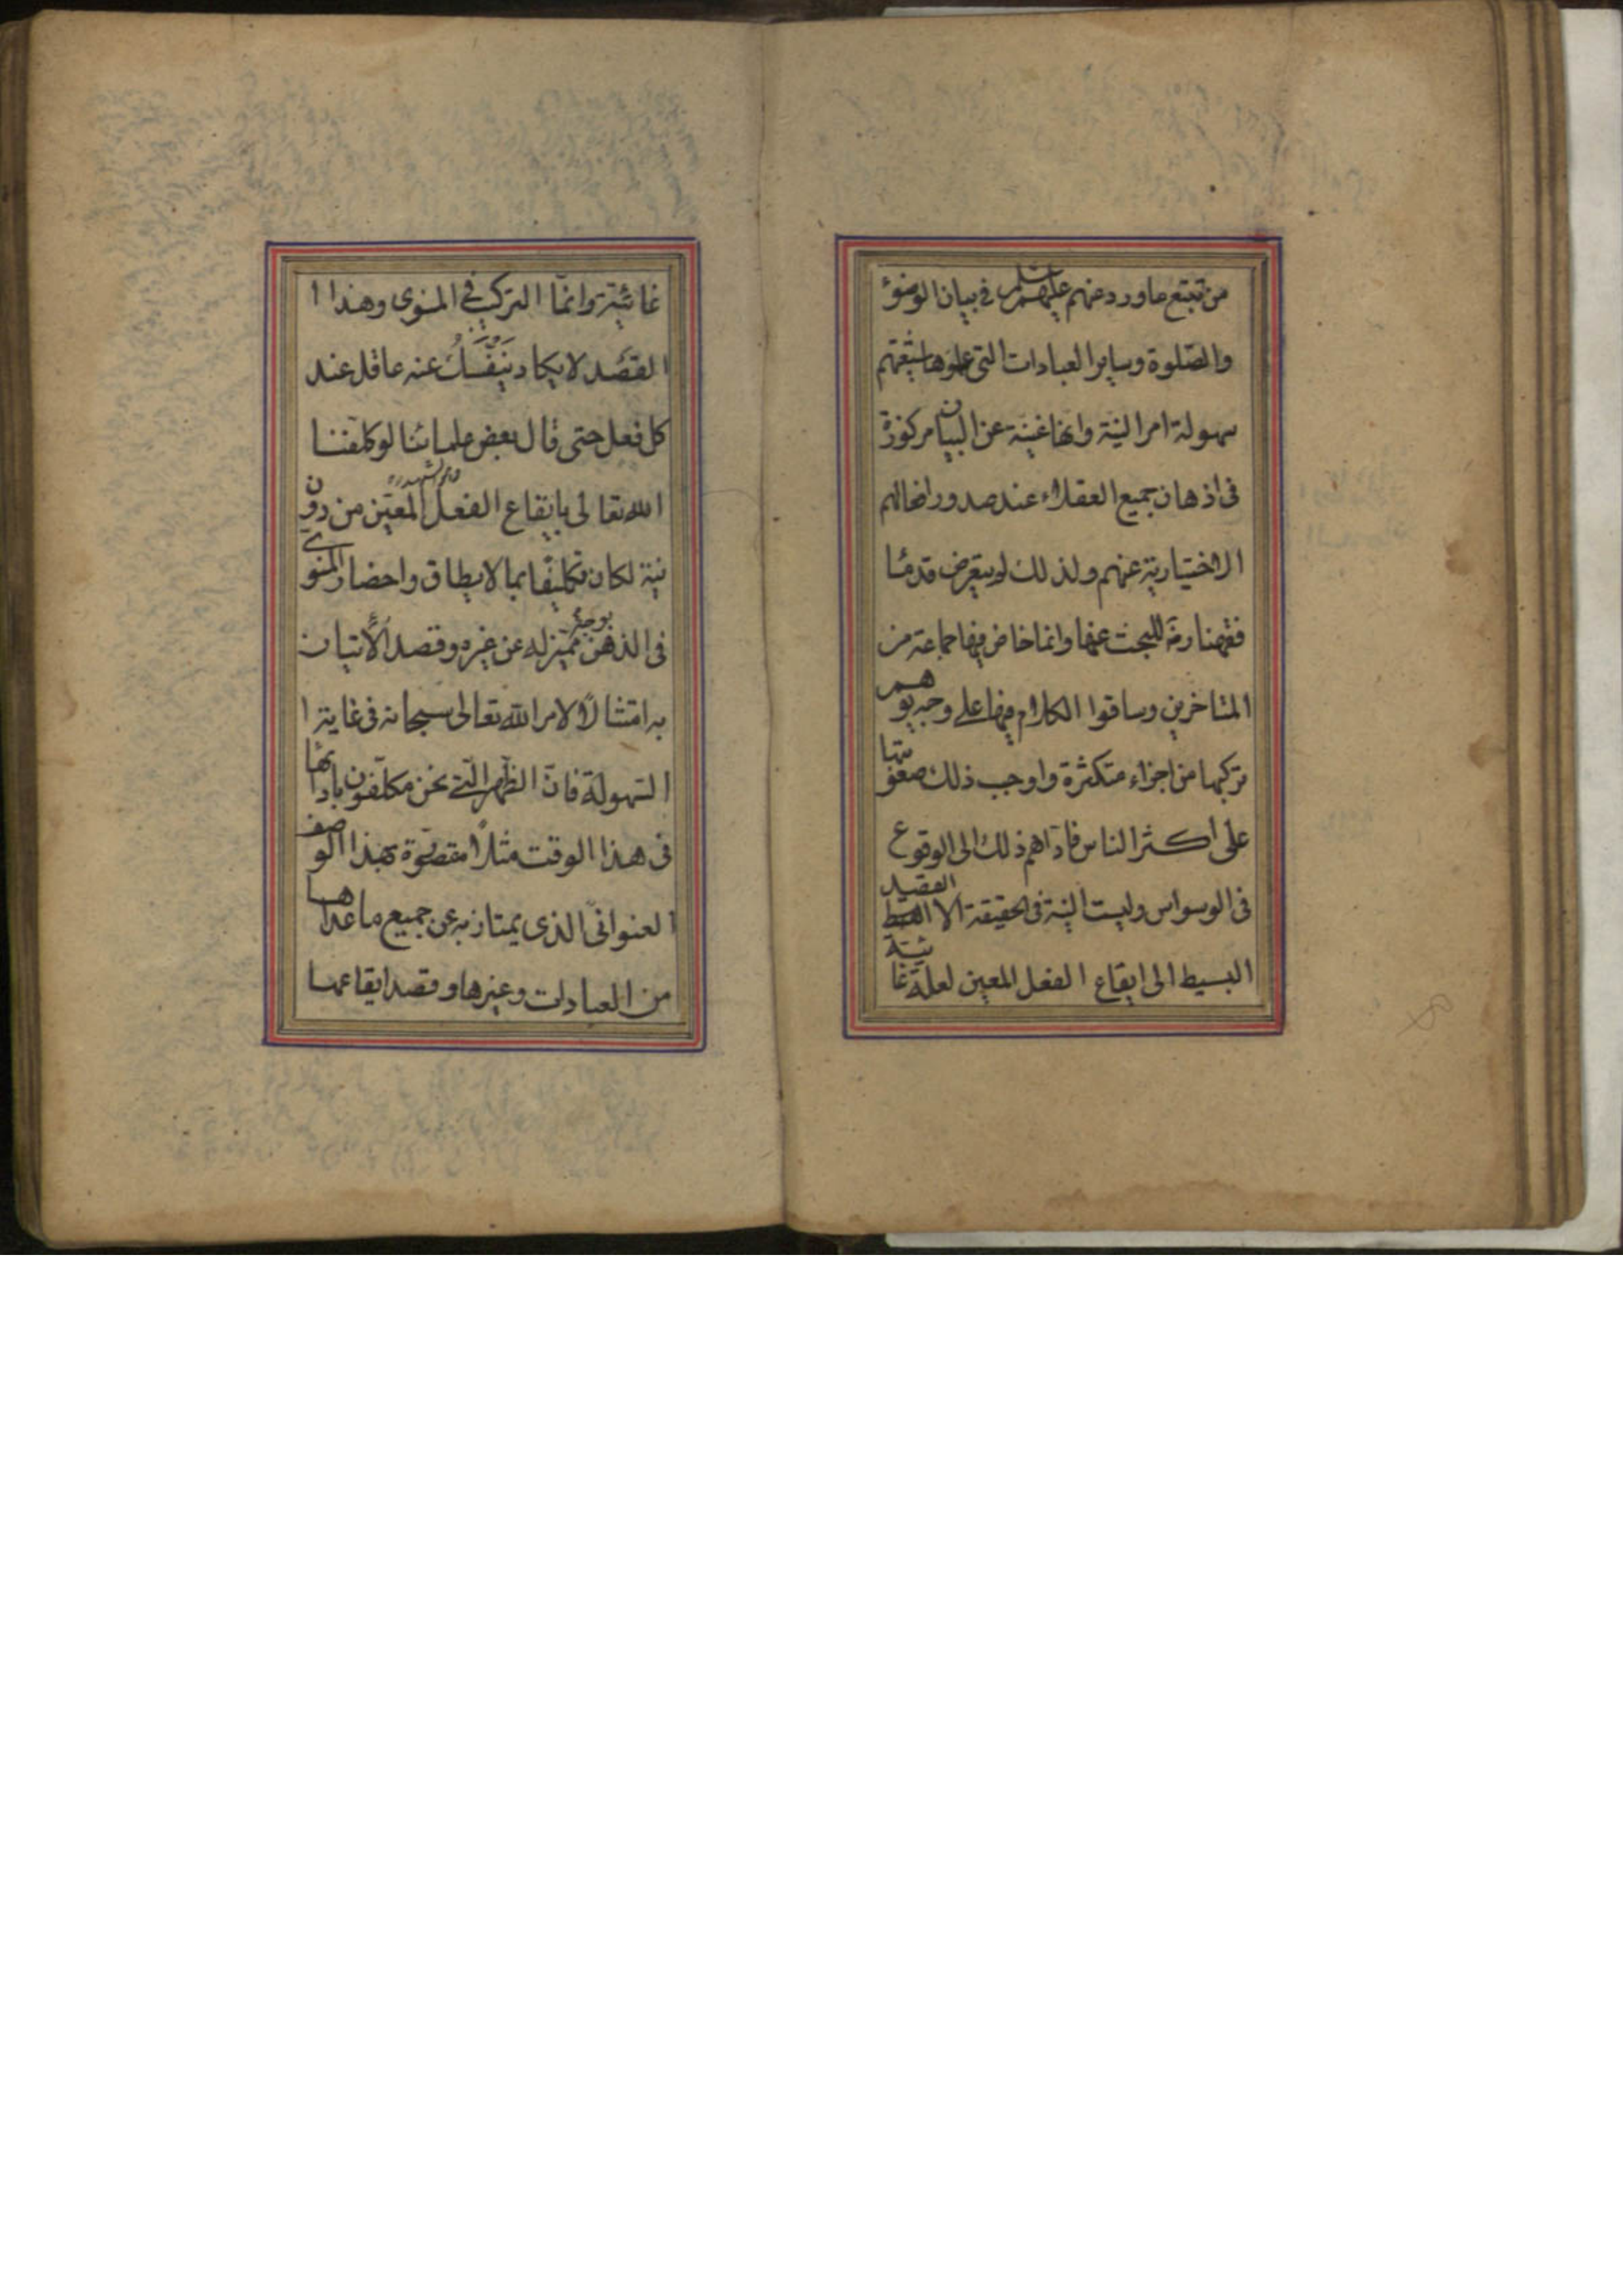 من تتبع ما ورد عنهم عليهم السلم فى بيان الوضوء
والصّلوة وساير العبادات التى علموها شيعتهم
سهولة امر النية وانها غنيّة عن البيان مركوزة
فى اذهان جميع العقلاء عند صدور افعالهم
الاختيارية عنهم ولذلك لم يتعرض قدماء
فقهائنا رضه للبحث عنها وانما خاض فيها جماعة من
المتاخرين وساقوا الكلام فيها على وجه يوهم
تركبها من اجزاء متكثرة واوجب ذلك صعوبتها
على اكثر الناس فادّاهم ذلك الى الوقوع
فى الوسواس وليست النية فى الحقيقة الا القصد
البسيط الى ايقاع الفعل المعين لعلة غائية
غائيّة وانمّا التركيب فى المنوى وهذا ا
القصد لا يكاد ينفكّ عنه عاقل عند
كل فعل حتى قال بعض علمائنا لو كلفنا
الله تعالى بايقاع الفعل المعيّن من دون
نية لكان تكليفًا بما لا يطاق واحضار المنوى
فى الذهن بوجه مميّز له عن غيره وقصد الأتيان
به امتثالًا لامر الله تعالى سبحانه فى غاية ا
السّهولة فانّ الظهر الّتى نحن مكلّفون بادائها
فى هذا الوقت مثلًا متصوّرة بهذا الوصف
العنوانىّ الذى يمتاز به عن جميع ما عداها
من العبادات وغيرها وقصد ايقاعها